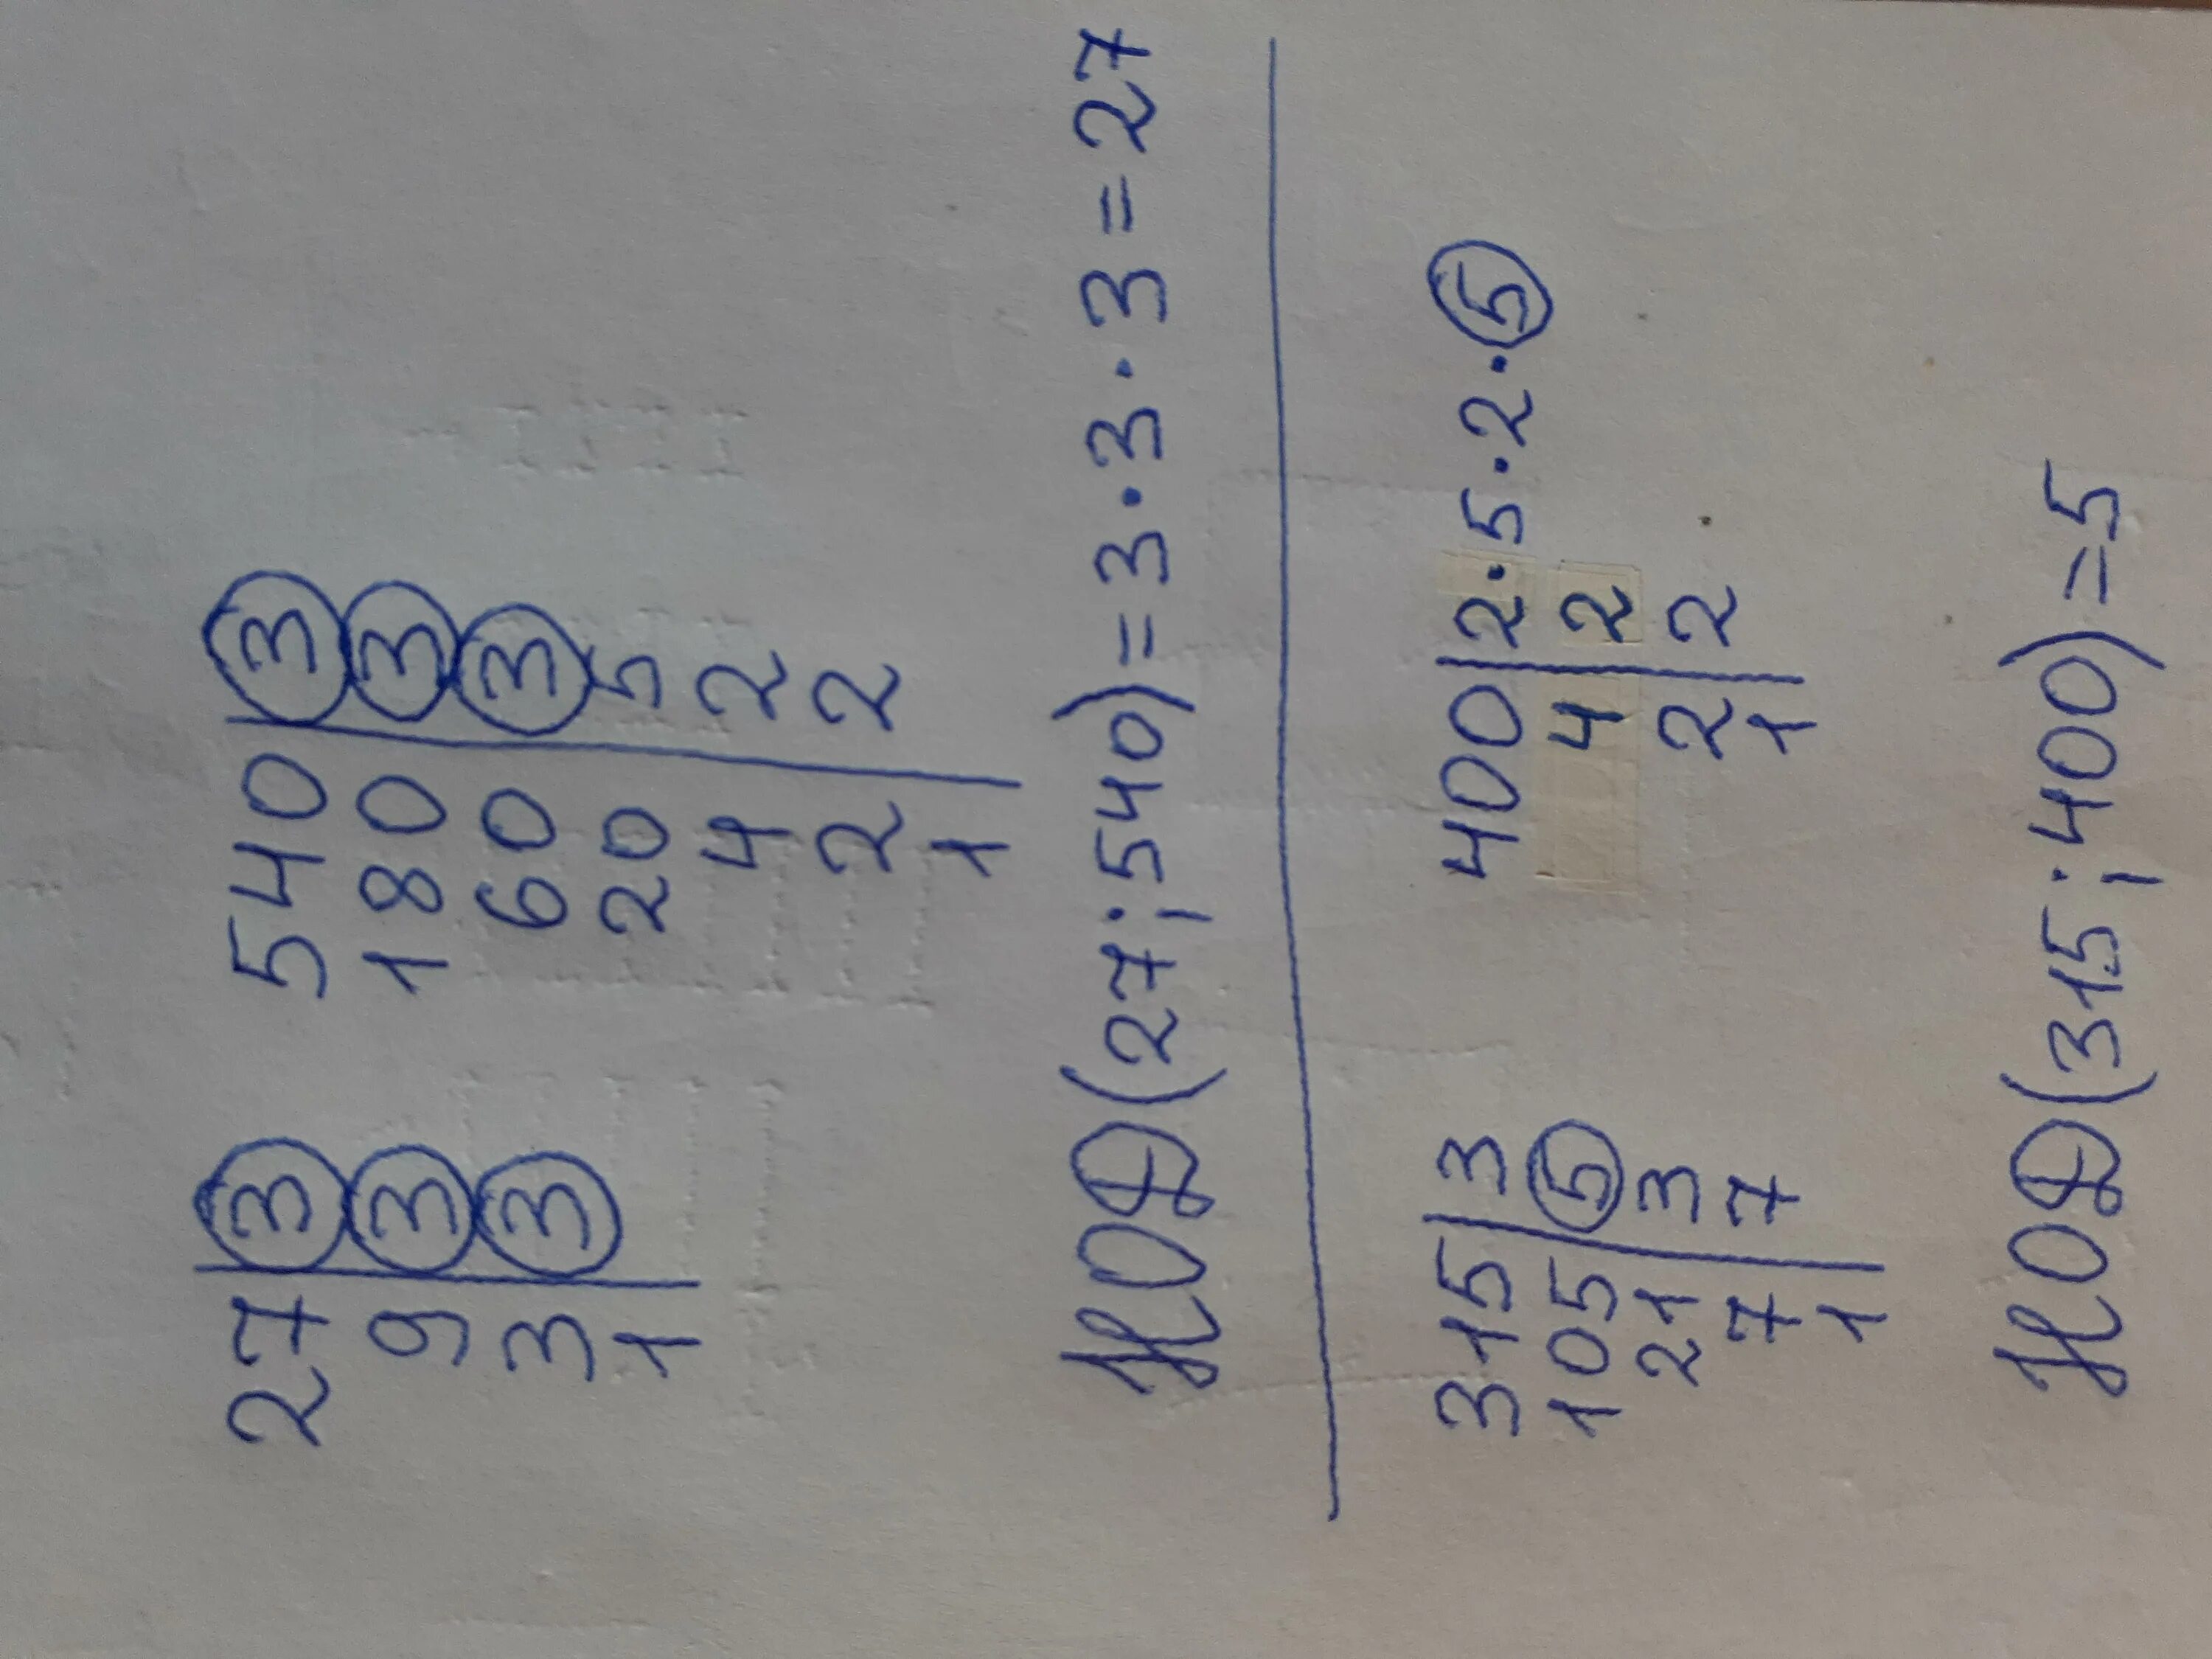 27|3 540|3
9|3 180|3
3|3 60|3
1| 20|5
4|2
2|2
1|
НОД(27;540)=3·3·3=27
315|3 400|2·5·2·5
105|5 4|2
21|3 2|2
7|7 1|
1|
НОД(315;400)=5